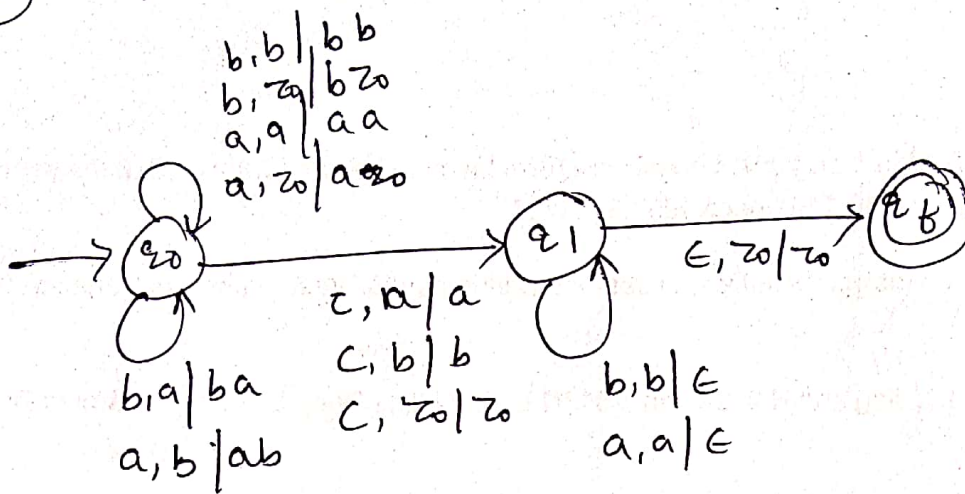 b, b | bb
b, z0 | bz0
a, a | aa
a, z0 | az0
q0
b, a | ba
a, b | ab
c, a | a
c, b | b
c, z0 | z0
q1
b, b | ε
a, a | ε
ε, z0 | z0
qf